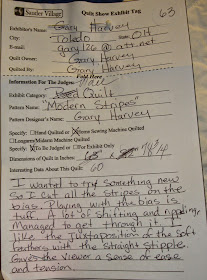 Sauder Village Quilt Show Exhibit Tag 63
Exhibitor's Name: Gary Harvey
City: Toledo State: OH
E-mail: gary126@att.net
Quilt Owner: Gary Harvey
Quilted By: Gary Harvey
Fold Here
Information
Exhibit Category: Bed Quilt
Pattern Name: "Modern Stripes"
Pattern Designer's Name: Gary Harvey
Specify: Hand Quilted or X Home Sewing Machine Quilted
Longarm/Midarm Machine Quilted
Specify: X To Be Judged or For Exhibit Only
Dimensions of Quilt in Inches:
Interesting Data About this Quilt: 60
I wanted to try something new
so I cut all the stripes on the
bias. Playing with the bias is
tuff. A lot of shifting and rippling.
Managed to get through it. I
like the juxtaposition of the soft
feathers with the straight stipple.
Gives the viewer a sense of ease
and tension.